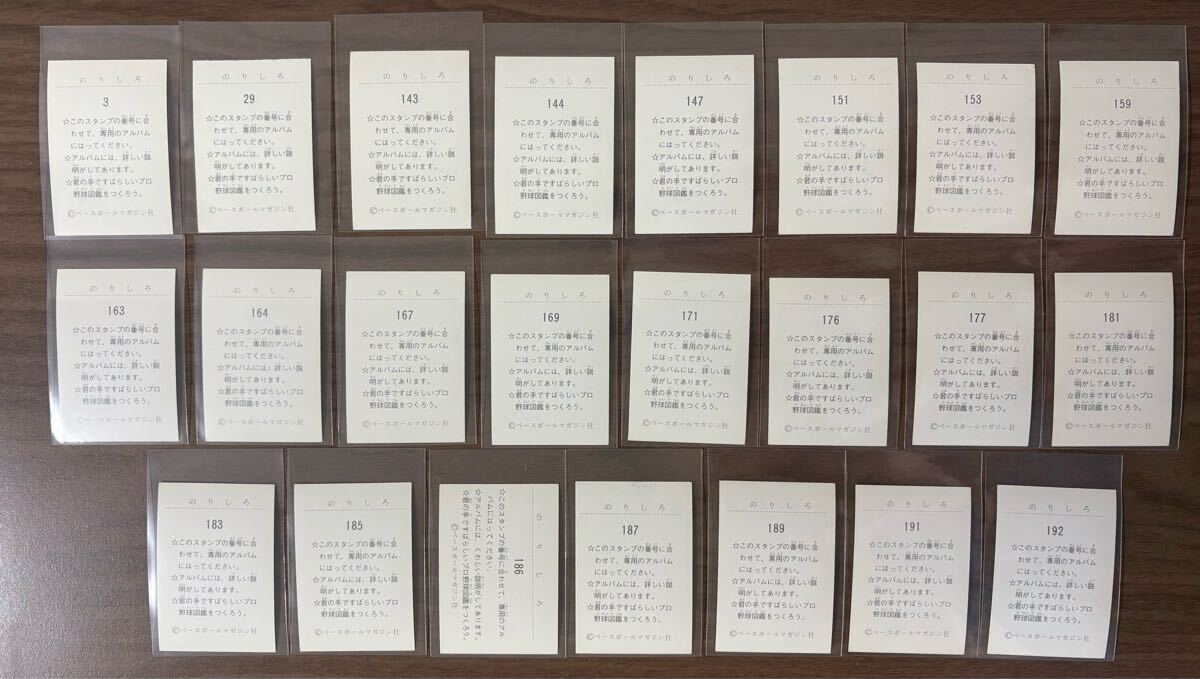 のりしろ
3
☆このスタンプの番号に合
わせて、専用のアルバム
にはってください。
☆アルバムには、詳しい説
明がしてあります。
☆君の手ですばらしいプロ
野球図鑑をつくろう。
©ベースボールマガジン社
のりしろ
29
☆このスタンプの番号に合
わせて、専用のアルバム
にはってください。
☆アルバムには、詳しい説
明がしてあります。
☆君の手ですばらしいプロ
野球図鑑をつくろう。
©ベースボールマガジン社
のりしろ
143
☆このスタンプの番号に合
わせて、専用のアルバム
にはってください。
☆アルバムには、詳しい説
明がしてあります。
☆君の手ですばらしいプロ
野球図鑑をつくろう。
©ベースボールマガジン社
のりしろ
144
☆このスタンプの番号に合
わせて、専用のアルバム
にはってください。
☆アルバムには、詳しい説
明がしてあります。
☆君の手ですばらしいプロ
野球図鑑をつくろう。
©ベースボールマガジン社
のりしろ
147
☆このスタンプの番号に合
わせて、専用のアルバム
にはってください。
☆アルバムには、詳しい説
明がしてあります。
☆君の手ですばらしいプロ
野球図鑑をつくろう。
©ベースボールマガジン社
のりしろ
151
☆このスタンプの番号に合
わせて、専用のアルバム
にはってください。
☆アルバムには、詳しい説
明がしてあります。
☆君の手ですばらしいプロ
野球図鑑をつくろう。
©ベースボールマガジン社
のりしろ
153
☆このスタンプの番号に合
わせて、専用のアルバム
にはってください。
☆アルバムには、詳しい説
明がしてあります。
☆君の手ですばらしいプロ
野球図鑑をつくろう。
©ベースボールマガジン社
のりしろ
159
☆このスタンプの番号に合
わせて、専用のアルバム
にはってください。
☆アルバムには、詳しい説
明がしてあります。
☆君の手ですばらしいプロ
野球図鑑をつくろう。
©ベースボールマガジン社
のりしろ
163
☆このスタンプの番号に合
わせて、専用のアルバム
にはってください。
☆アルバムには、詳しい説
明がしてあります。
☆君の手ですばらしいプロ
野球図鑑をつくろう。
©ベースボールマガジン社
のりしろ
164
☆このスタンプの番号に合
わせて、専用のアルバム
にはってください。
☆アルバムには、詳しい説
明がしてあります。
☆君の手ですばらしいプロ
野球図鑑をつくろう。
©ベースボールマガジン社
のりしろ
167
☆このスタンプの番号に合
わせて、専用のアルバム
にはってください。
☆アルバムには、詳しい説
明がしてあります。
☆君の手ですばらしいプロ
野球図鑑をつくろう。
©ベースボールマガジン社
のりしろ
169
☆このスタンプの番号に合
わせて、専用のアルバム
にはってください。
☆アルバムには、詳しい説
明がしてあります。
☆君の手ですばらしいプロ
野球図鑑をつくろう。
©ベースボールマガジン社
のりしろ
171
☆このスタンプの番号に合
わせて、専用のアルバム
にはってください。
☆アルバムには、詳しい説
明がしてあります。
☆君の手ですばらしいプロ
野球図鑑をつくろう。
©ベースボールマガジン社
のりしろ
176
☆このスタンプの番号に合
わせて、専用のアルバム
にはってください。
☆アルバムには、詳しい説
明がしてあります。
☆君の手ですばらしいプロ
野球図鑑をつくろう。
©ベースボールマガジン社
のりしろ
177
☆このスタンプの番号に合
わせて、専用のアルバム
にはってください。
☆アルバムには、詳しい説
明がしてあります。
☆君の手ですばらしいプロ
野球図鑑をつくろう。
©ベースボールマガジン社
のりしろ
181
☆このスタンプの番号に合
わせて、専用のアルバム
にはってください。
☆アルバムには、詳しい説
明がしてあります。
☆君の手ですばらしいプロ
野球図鑑をつくろう。
©ベースボールマガジン社
のりしろ
183
☆このスタンプの番号に合
わせて、専用のアルバム
にはってください。
☆アルバムには、詳しい説
明がしてあります。
☆君の手ですばらしいプロ
野球図鑑をつくろう。
©ベースボールマガジン社
のりしろ
185
☆このスタンプの番号に合
わせて、専用のアルバム
にはってください。
☆アルバムには、詳しい説
明がしてあります。
☆君の手ですばらしいプロ
野球図鑑をつくろう。
©ベースボールマガジン社
のりしろ
186
☆このスタンプの番号に合わせて、専用のアル
バムにはってください。
☆アルバムには、くわしい説明がしてあります。
☆君の手ですばらしいプロ野球図鑑をつくろう。
©ベースボールマガジン社
のりしろ
187
☆このスタンプの番号に合
わせて、専用のアルバム
にはってください。
☆アルバムには、詳しい説
明がしてあります。
☆君の手ですばらしいプロ
野球図鑑をつくろう。
©ベースボールマガジン社
のりしろ
189
☆このスタンプの番号に合
わせて、専用のアルバム
にはってください。
☆アルバムには、詳しい説
明がしてあります。
☆君の手ですばらしいプロ
野球図鑑をつくろう。
©ベースボールマガジン社
のりしろ
191
☆このスタンプの番号に合
わせて、専用のアルバム
にはってください。
☆アルバムには、詳しい説
明がしてあります。
☆君の手ですばらしいプロ
野球図鑑をつくろう。
©ベースボールマガジン社
のりしろ
192
☆このスタンプの番号に合
わせて、専用のアルバム
にはってください。
☆アルバムには、詳しい説
明がしてあります。
☆君の手ですばらしいプロ
野球図鑑をつくろう。
©ベースボールマガジン社